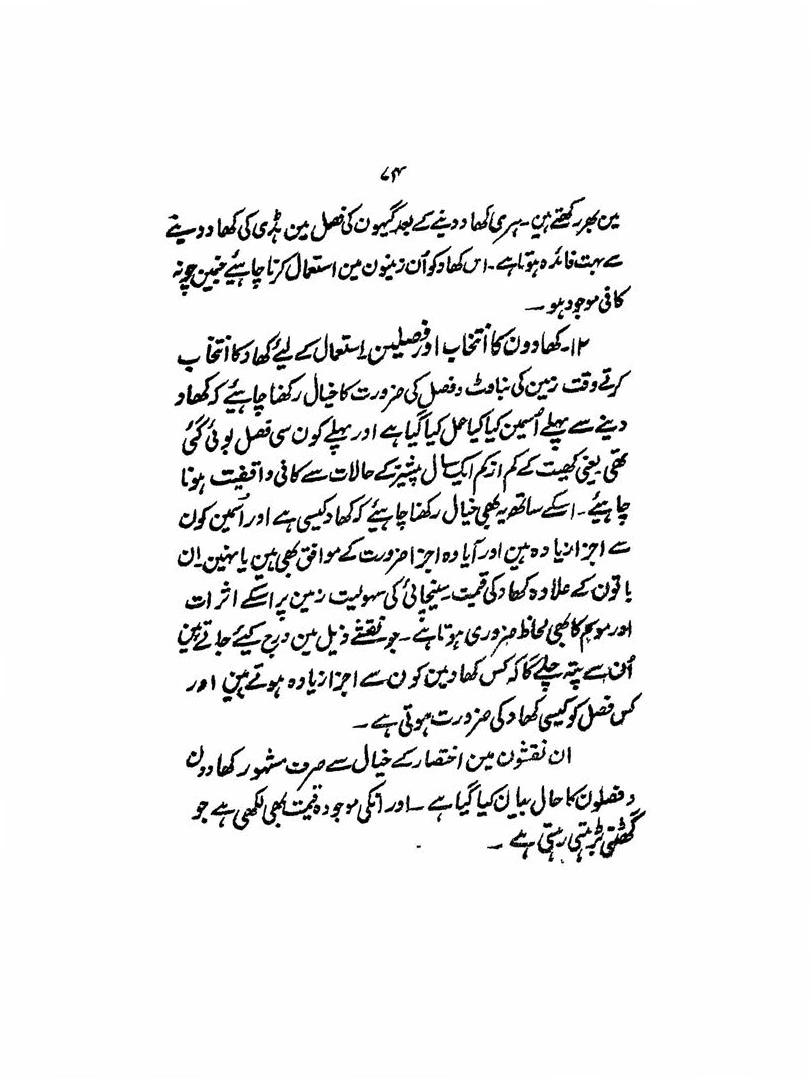 ۷۴
مین بھر رکھتے ہین۔ ہری کھاد دینے کے بعد گیہون کی فصل مین ہڈی کی کھاد دینے
سے بہت فائدہ ہوتا ہے۔ اس کھاد کو اُن زمینون مین استعمال کرنا چاہیئے جنمین چونہ
کافی موجود ہو۔
۱۲۔ کھادون کا انتخاب اور فصلین۔ استعمال کے لیئے کھاد کا انتخاب
کرتے وقت زمین کی بناوٹ و فصل کی ضرورت کا خیال رکھنا چاہیئے کہ کھاد
دینے سے پہلے اُسمین کیا کیا عمل کیا گیا ہے اور پہلے کون سی فصل بوئی گئی
تھی یعنی کھیت کے کم از کم ایک سال پیشتر کے حالات سے کافی واقفیت ہونا
چاہیئے۔ اسکے ساتھ یہ بھی خیال رکھنا چاہیئے کہ کھاد کیسی ہے اور اسمین کون
سے اجزا زیادہ ہین اور آیا وہ اجزا ضرورت کے موافق بھی ہین یا نہین۔ اِن
باتون کے علاوہ کھاد کی قیمت سینچائی کی سہولیت زمین پر اسکے اثرات
اور موسم کا بھی لحاظ ضروری ہوتا ہے۔ جو نقشے ذیل مین درج کیئے جاتے ہین
اُن سے پتہ چلے گا کہ کس کھاد مین کون سے اجزا زیادہ ہوتے ہین اور
کس فصل کو کیسی کھاد کی ضرورت ہوتی ہے۔
ان نقشون مین اختصار کے خیال سے صرف مشہور کھادون
و فصلون کا حال بیان کیا گیا ہے۔ اور انکی موجودہ قیمت بھی لکھی ہے جو
گھٹتی بڑہتی رہتی ہے۔